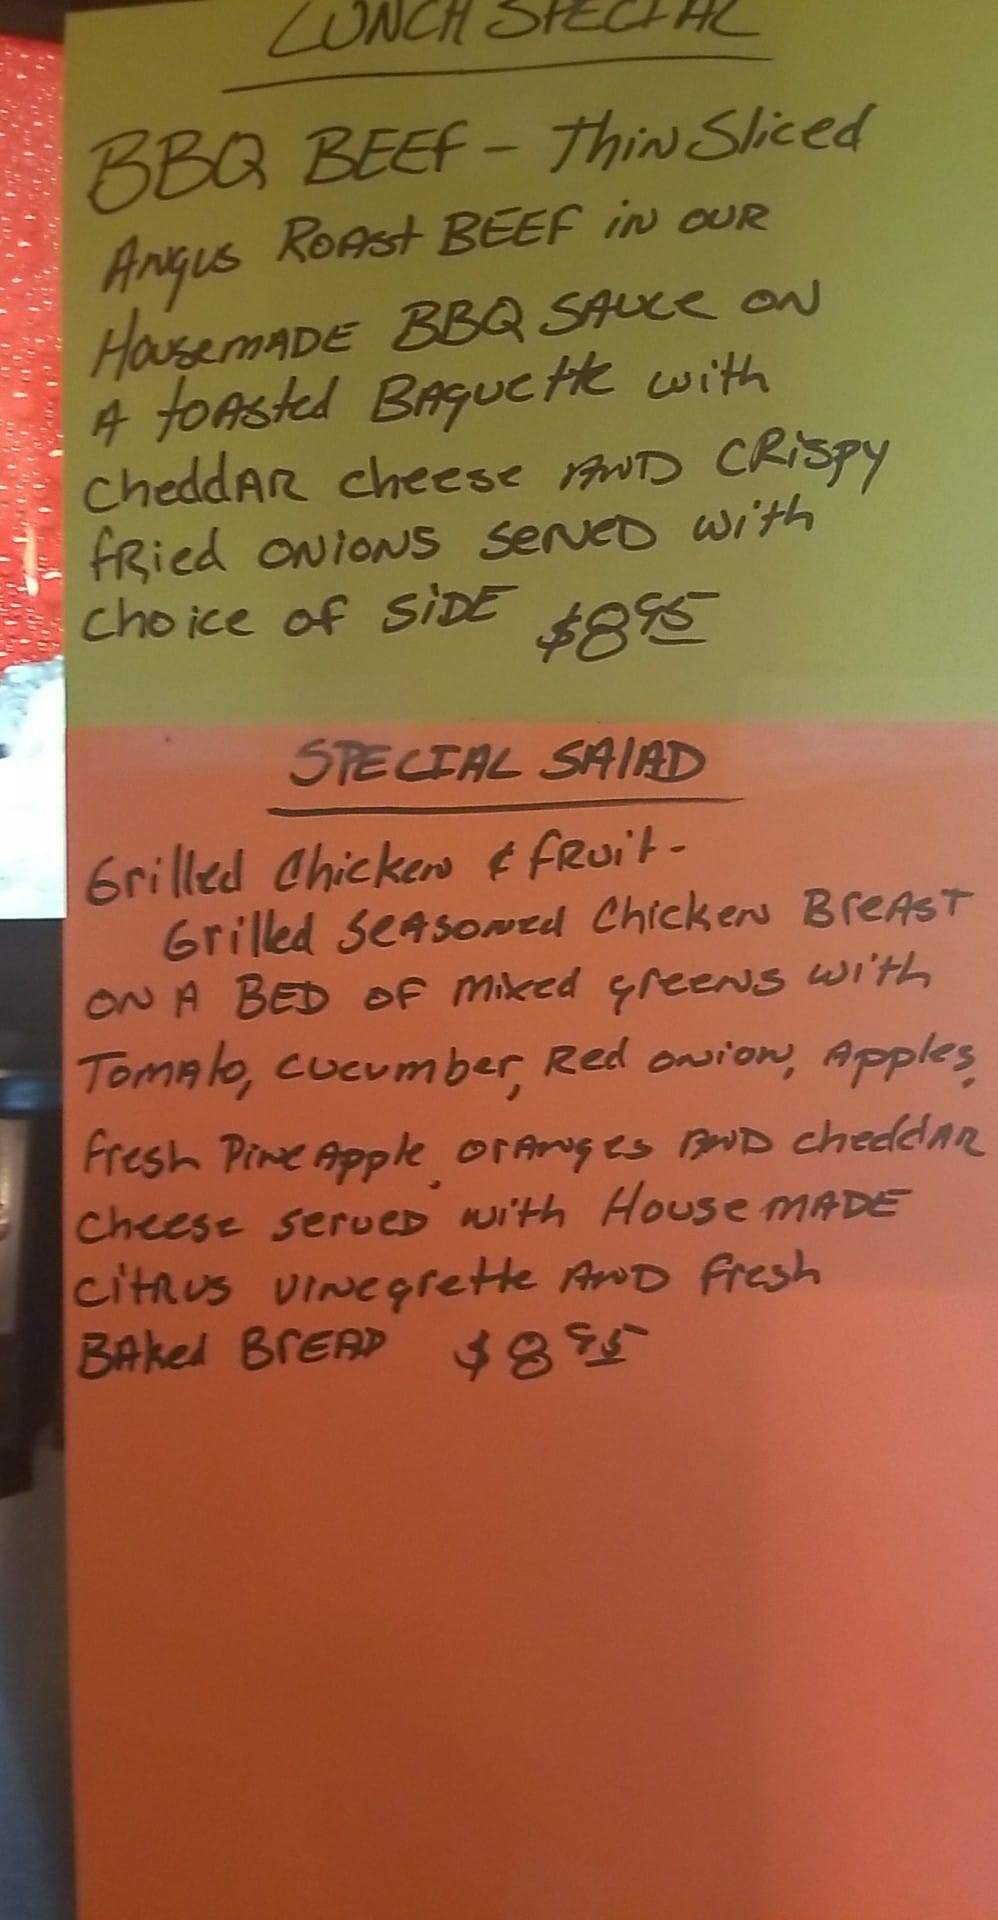 LUNCH SPECIAL
BBQ BEEF - thin Sliced
Angus Roast BEEF in our
Housemade BBQ Sauce on
A toasted Baguette with
cheddar cheese AND Crispy
fried onions served with
choice of SiDE $8 95
SPECIAL SALAD
Grilled Chicken & fruit-
Grilled Seasoned Chicken Breast
on A BED of mixed greens with
Tomato, cucumber, Red onion, Apples,
fresh PineApple, oranges AND cheddar
cheese served with House made
citrus vinegrette AND fresh
Baked Bread $8 95